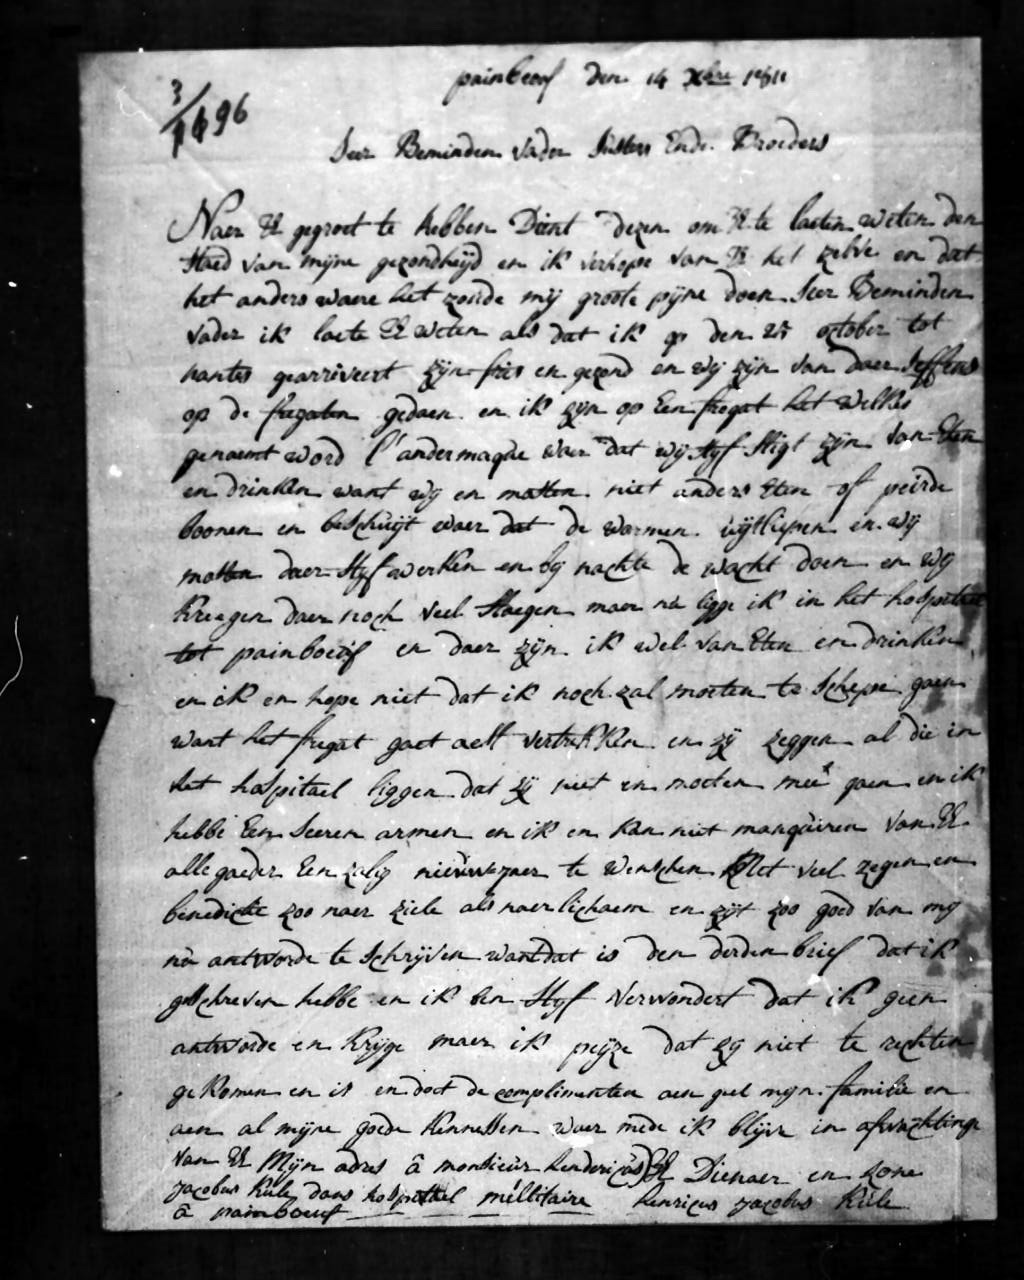 painbeoof den 14 Xbre 1811
3/1696
Seer Beminden vader Susters Ende Broeders
Naer UE gegroet te hebben Dient dezen om UE te laeten weten den
staed van mijne gezondheijd en ik verhope van UE het zelve en dat
het anders waere het zoude mij groote pijne doen Seer Beminden
vader ik laete UE weten als dat ik op den october tot
nantes gearriveert zijn fris en gezond en wij zijn van daer seffens
op de fregatten gedaen en ik zijn op Een fregat het welke
genaemt word l'andermaque waer dat wij styf sligt zijn van Eten
en drinken want wy en motten niet anders Eten of peirde
boonen en beschuijt waer dat de wormen uijtlupen en wij
motten daer styf werken en by nachte de wacht doen en wy
kriegen daer noch veel slaegen maer nu ligge ik in het hospitael
tot painboeuf en daer zijn ik wel van Eten en drinken
en ik en hope niet dat ik noch zal moeten te schepe gaen
want het fregat gaet aest vertrekken en zij zeggen al die in
het hospitael liggen dat zij niet en moeten mee gaen en ik
hebbe Een seeren armen en ik en kan niet manquiren van UE
alle gaeder Een zalig nieuwejaer te wenschen Met veel zegen en
benedictie zoo naer ziele als naer lichaem en zijt zoo goed van my
nu antworde te schrijven want dat is den derden brief dat ik
geschreven hebbe en ik ben styf verwondert dat ik geen
antworde en krijge maer ik peijze dat zy niet te rechten
gekomen en is en doet de complimenten aen geel mijn familie en
aen al mijne goede kennessen waer mede ik blijve in afwachtinge
van UE Mijn adres â monsieur hendericus UE Dienaer en zone
jacobus kule dans hospithel millitaire henricus jacobus kule
â painboeuf